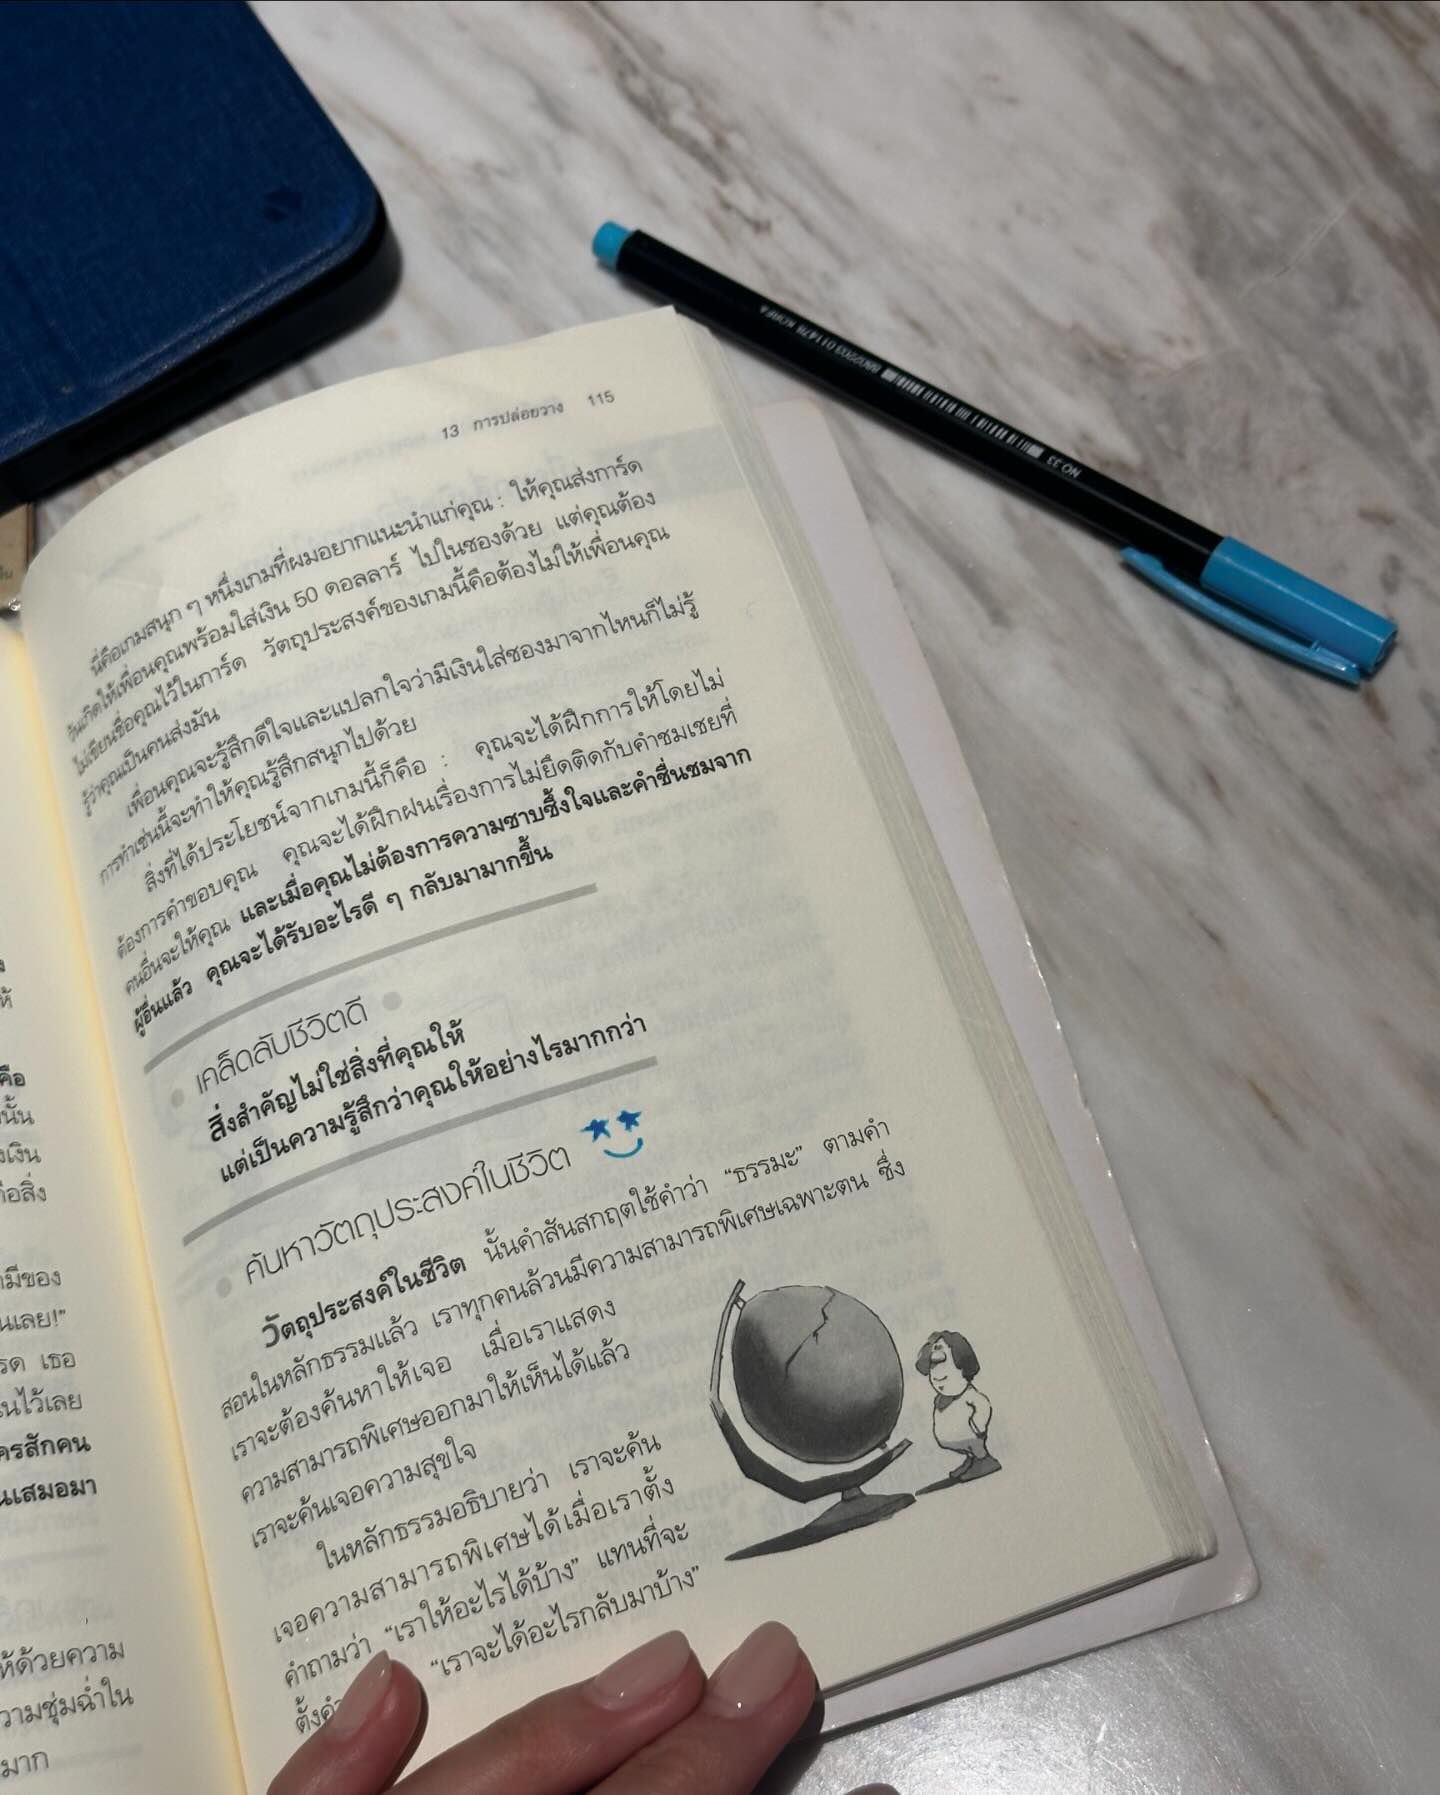 13 การปล่อยวาง 115
นี่คือเกมสนุก ๆ หนึ่งเกมที่ผมอยากแนะนำแก่คุณ : ให้คุณส่งการ์ด
วันเกิดให้เพื่อนคุณพร้อมใส่เงิน 50 ดอลลาร์ ไปในซองด้วย แต่คุณต้อง
ไม่เขียนชื่อคุณไว้ในการ์ด วัตถุประสงค์ของเกมนี้คือต้องไม่ให้เพื่อนคุณ
รู้ว่าคุณเป็นคนส่งมัน
เพื่อนคุณจะรู้สึกดีใจและแปลกใจว่ามีเงินใส่ซองมาจากไหนก็ไม่รู้
การทำเช่นนี้จะทำให้คุณรู้สึกสนุกไปด้วย
สิ่งที่ได้ประโยชน์จากเกมนี้ก็คือ : คุณจะได้ฝึกการให้โดยไม่
ต้องการคำขอบคุณ คุณจะได้ฝึกฝนเรื่องการไม่ยึดติดกับคำชมเชยที่
คนอื่นจะให้คุณ และเมื่อคุณไม่ต้องการความซาบซึ้งใจและคำชื่นชมจาก
ผู้อื่นแล้ว คุณจะได้รับอะไรดี ๆ กลับมามากขึ้น
เคล็ดลับชีวิตดี
สิ่งสำคัญไม่ใช่สิ่งที่คุณให้
แต่เป็นความรู้สึกว่าคุณให้อย่างไรมากกว่า
ค้นหาวัตถุประสงค์ในชีวิต
วัตถุประสงค์ในชีวิต นั้นคำสันสกฤตใช้คำว่า “ธรรมะ” ตามคำ
สอนในหลักธรรมแล้ว เราทุกคนล้วนมีความสามารถพิเศษเฉพาะตน ซึ่ง
เราจะต้องค้นหาให้เจอ เมื่อเราแสดง
ความสามารถพิเศษออกมาให้เห็นได้แล้ว
เราจะค้นเจอความสุขใจ
ในหลักธรรมอธิบายว่า เราจะค้น
เจอความสามารถพิเศษได้เมื่อเราตั้ง
คำถามว่า “เราให้อะไรได้บ้าง” แทนที่จะ
“เราจะได้อะไรกลับมาบ้าง”
คือ
นั้น
มีของ
นเลย!”
เธอ
นไว้เลย
ครสักคน
นเสมอมา
ห้ด้วยความ
วามชุ่มฉ่ำใน
มาก
NO.33